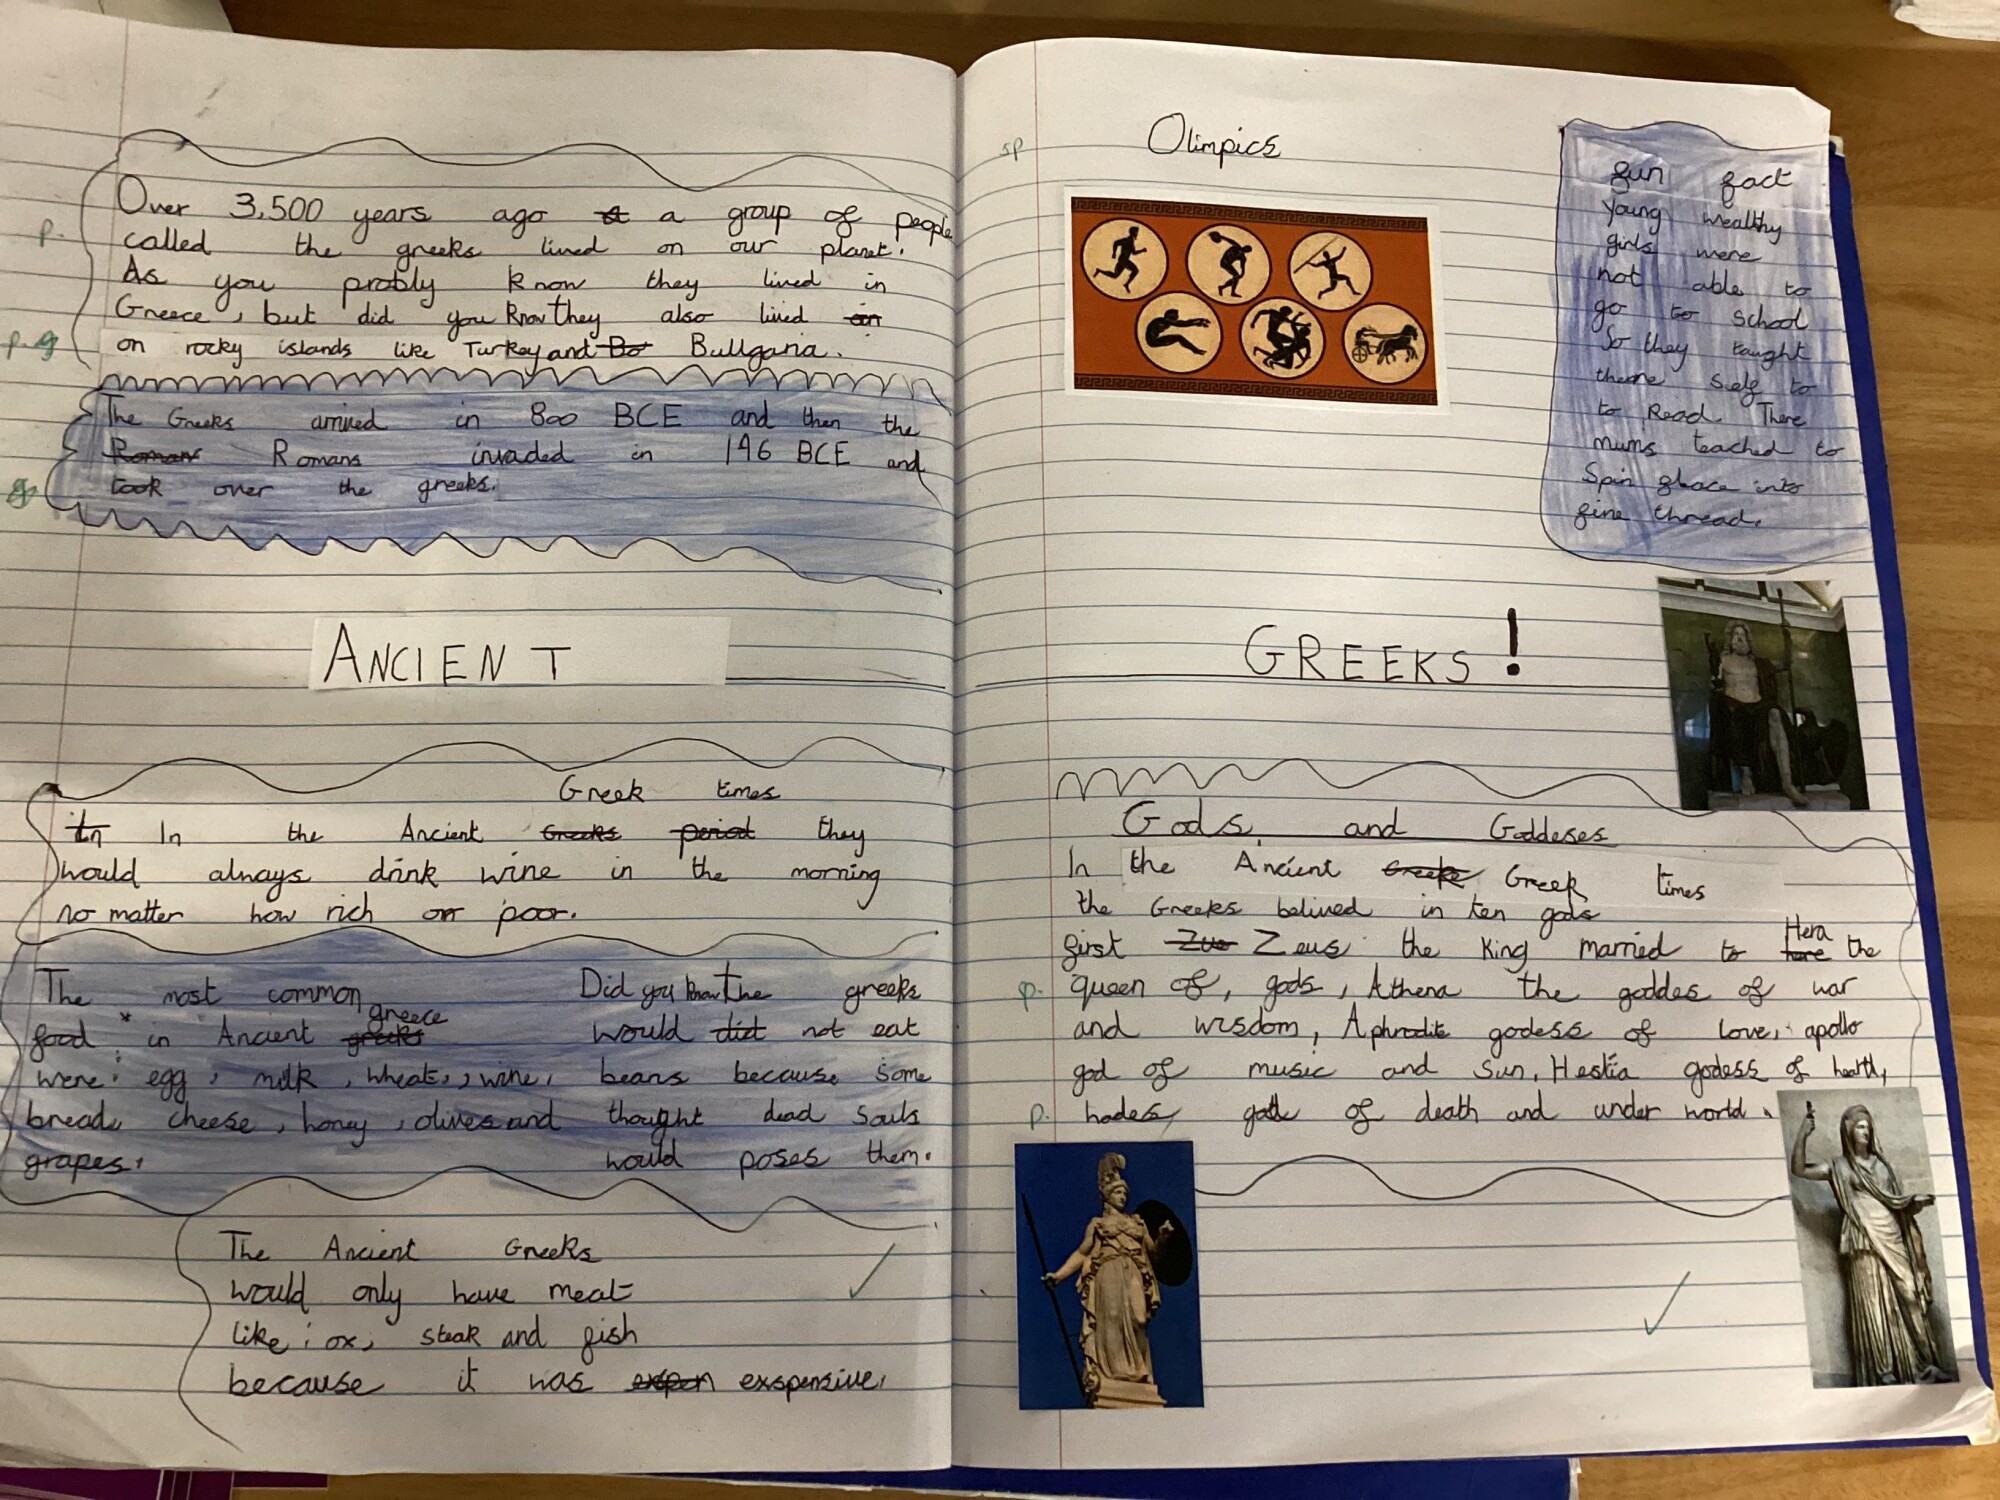 Over 3,500 years ago a group of people
p. called the greeks lived on our planet!
As you probly know they lived in
Greece, but did you know they also lived on
p. g on rocky islands like Turkey and Bo Bullgaria.
The Greeks arrived in 800 BCE and then the
Romans Romans invaded in 146 BCE and
g took over the greeks.
ANCIENT
Greek times
in In the Ancient Greeks period they
would always drink wine in the morning
no matter how rich or poor.
The most common
greece
food * in Ancient greeks
were: egg, milk, wheat, wine,
bread, cheese, honey, olives and
grapes.
Did you know the greeks
would did not eat
beans because some
thought dead souls
would poses them.
The Ancient Greeks
would only have meat
like: ox, steak and fish
because it was expen exspensive.
sp Olimpics
fun fact
young wealthy
girls were
not able to
go to school
So they taught
theme self to
to Read There
mums teached to
Spin into
fine thread.
GREEKS!
Gods and Goddeses
In the Ancient Greeke Greek times
the Greeks belived in ten gods
Hera
first Zuo Zeus the King married to here the
p. queen of, gods, Athena the goddes of war
and wisdom, Aphrodite godess of love, apollo
god of music and Sun, Hestia godess of hearth,
p. hades, god of death and under world.